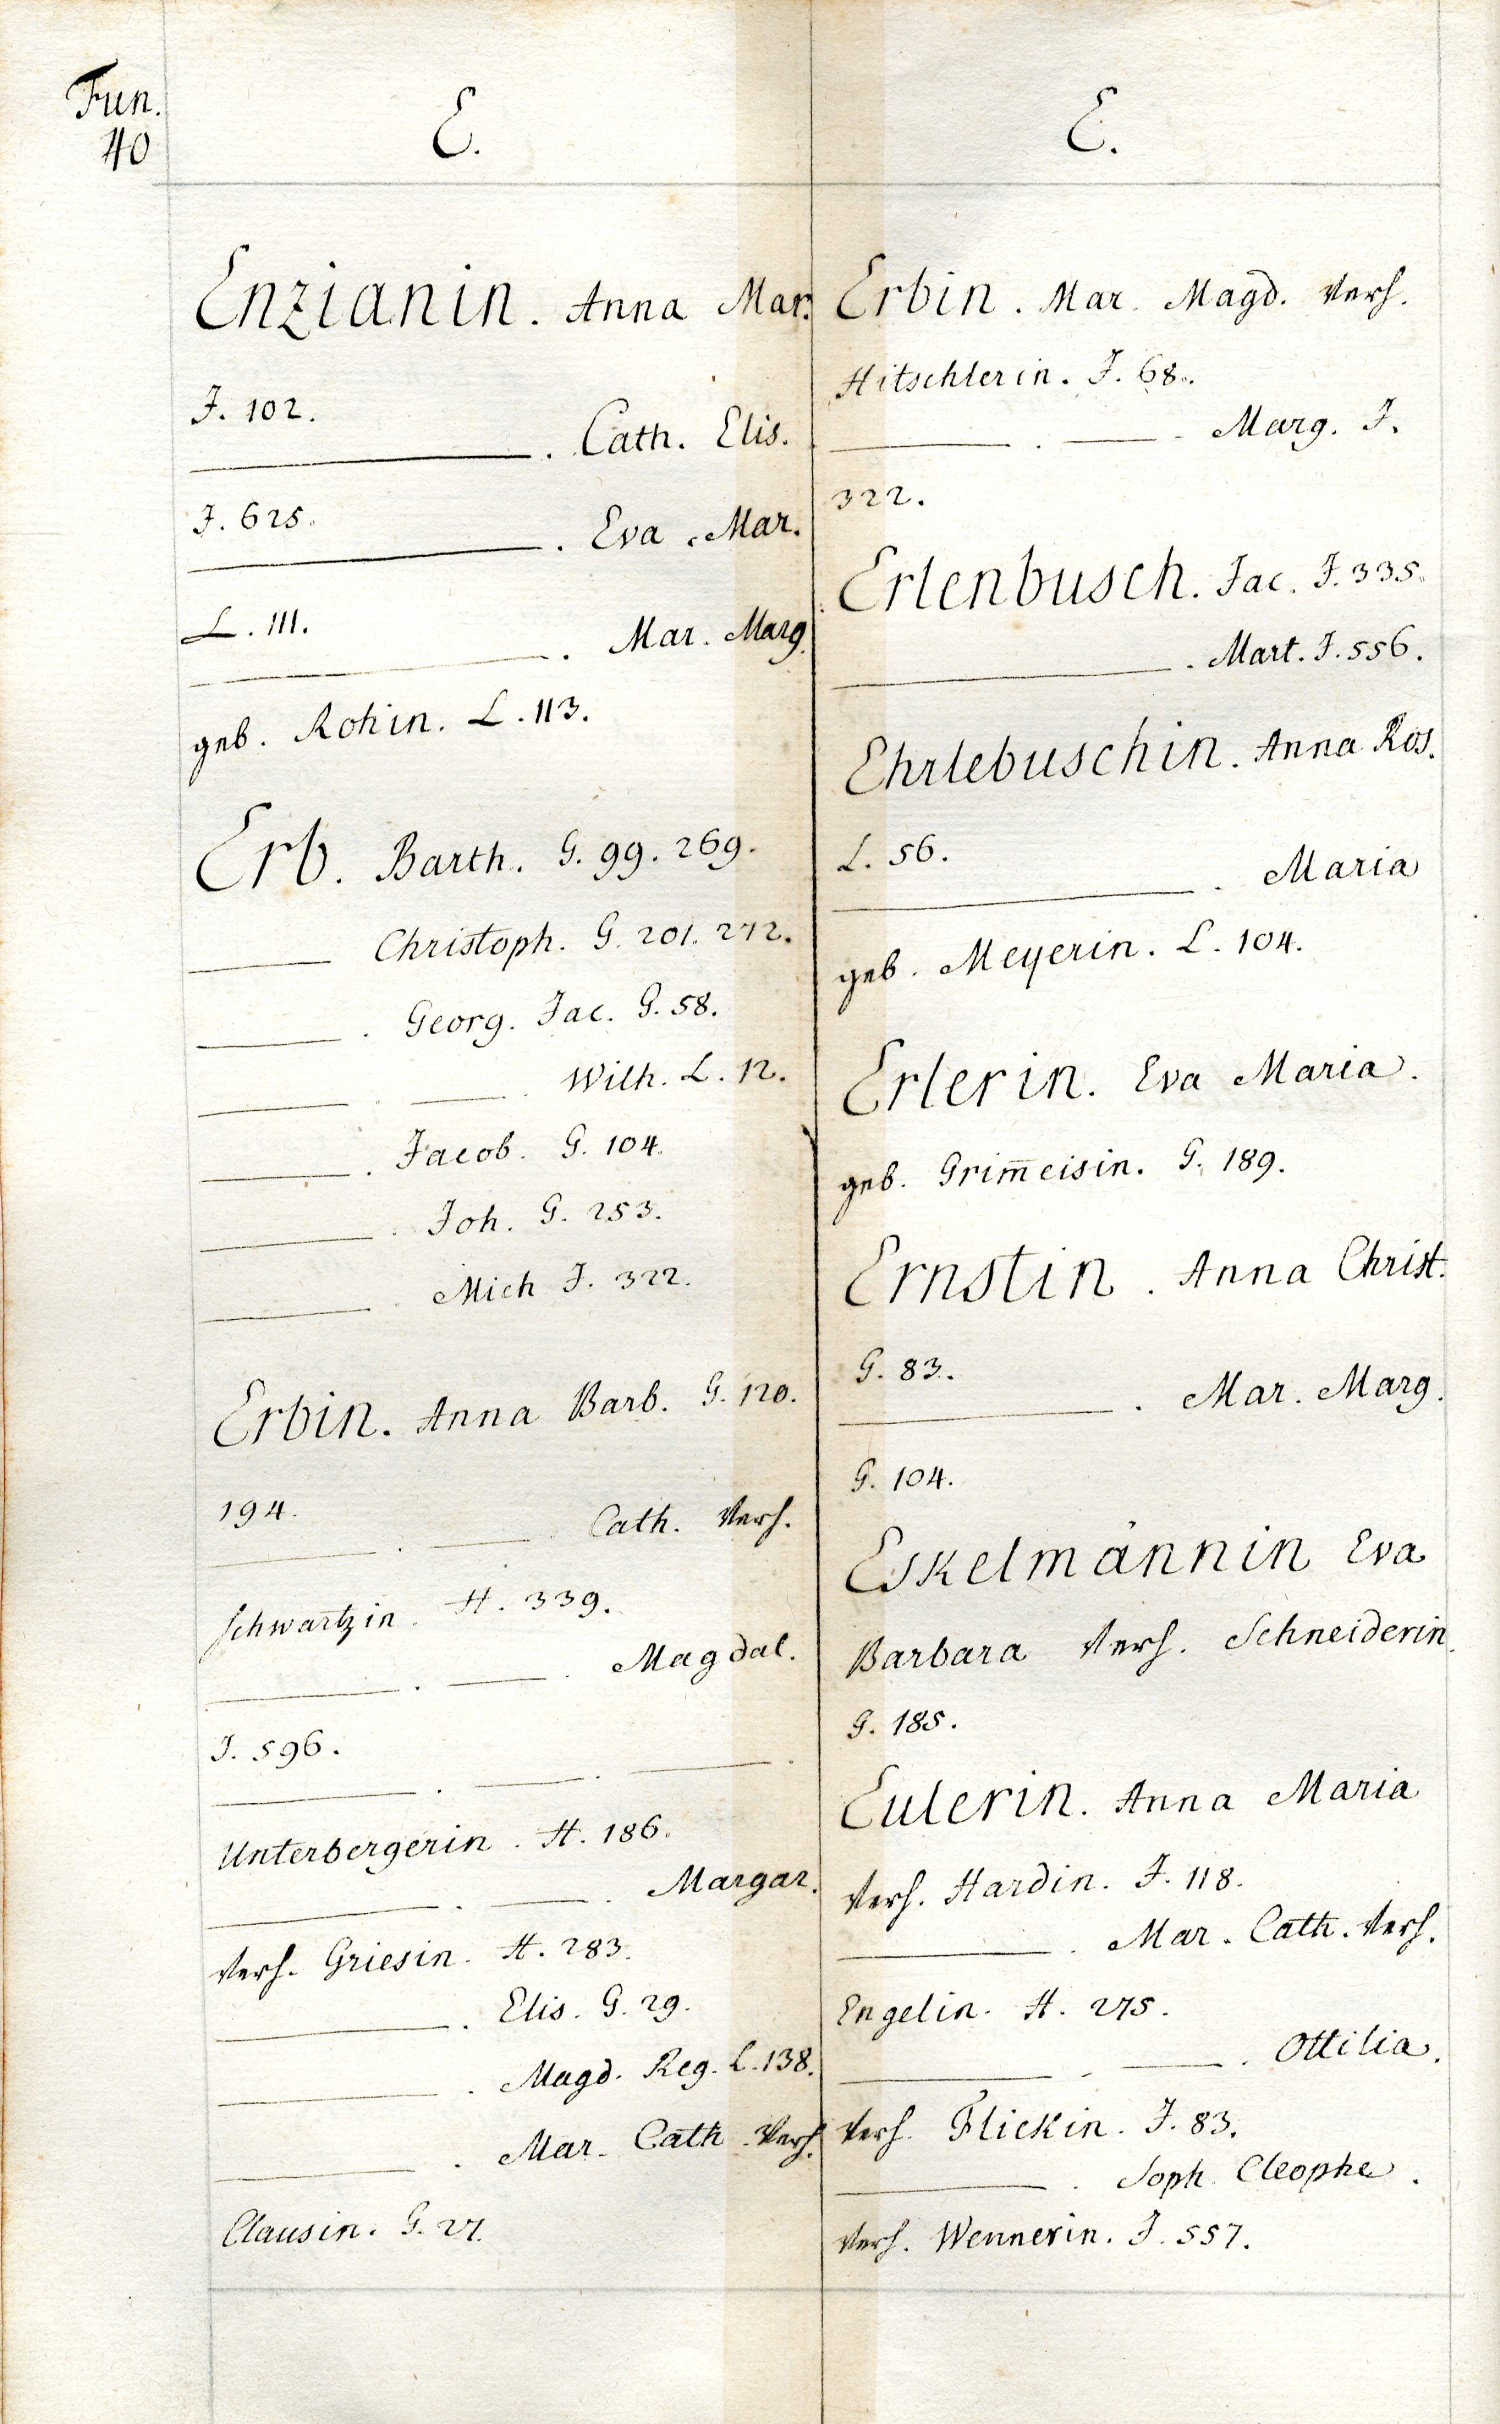 Fun.
40
E.
Enzianin. Anna Mar.
J. 102.
———. Cath. Elis.
J. 625.
———. Eva Mar.
L. 111.
———. Mar. Marg.
geb. Rohin. L. 113.
Erb. Barth. G. 99. 269.
——— Christoph. G. 201. 272.
———. Georg. Jac. G. 58.
———. ———. Wilh. L. 12.
———. Jacob. G. 104.
———. Joh. G. 253.
———. Mich J. 322.
Erbin. Anna Barb. G. 120.
194.
———. ———. Cath. Verh.
Schwartzin. H. 339.
———. ———. Magdal.
J. 596.
———. ———. ———.
Unterbergerin. H. 186.
———. ———. Margar.
Verh. Griesin. H. 283.
———. Elis. G. 29.
———. Magd. Reg. L. 138.
———. Mar. Cath. Verh.
Clausin. G. 27.
E.
Erbin. Mar. Magd. Verh.
Hitschlerin. J. 68.
———. ———. Marg. J.
322.
Erlenbusch. Jac. J. 335.
———. Mart. J. 556.
Ehrlebuschin. Anna Ros.
L. 56.
———. Maria
geb. Meyerin. L. 104.
Erlerin. Eva Maria.
geb. Grim̅eisin. G. 189.
Ernstin. Anna Christ.
G. 83.
———. Mar. Marg.
G. 104.
Eskelmännin Eva
Barbara Verh. Schneiderin.
G. 185.
Eulerin. Anna Maria
Verh. Hardin. J. 118.
———. Mar. Cath. Verh.
Engelin. H. 275.
———. ———. Ottilia.
Verh. Flickin. J. 83.
———. Soph. Cleophe.
Verh. Wennerin. J. 557.